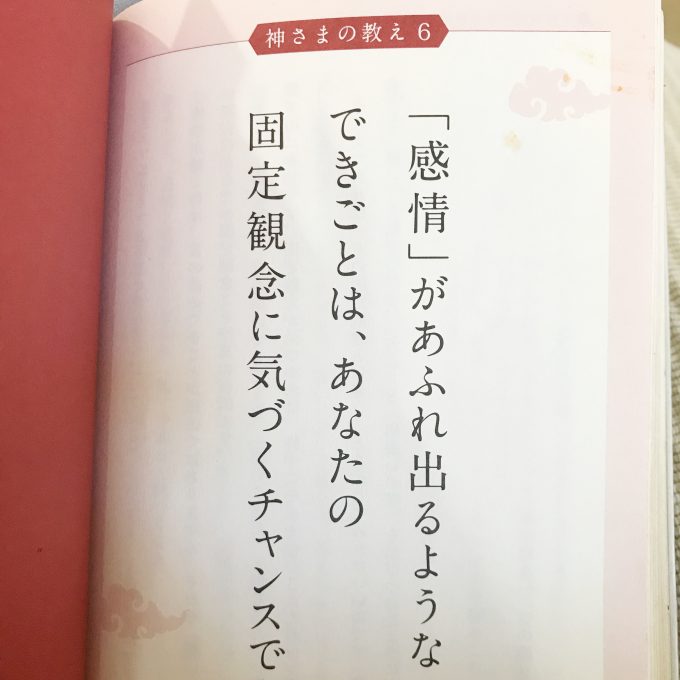 神さまの教え 6
「感情」があふれ出るような
できごとは、あなたの
固定観念に気づくチャンスで